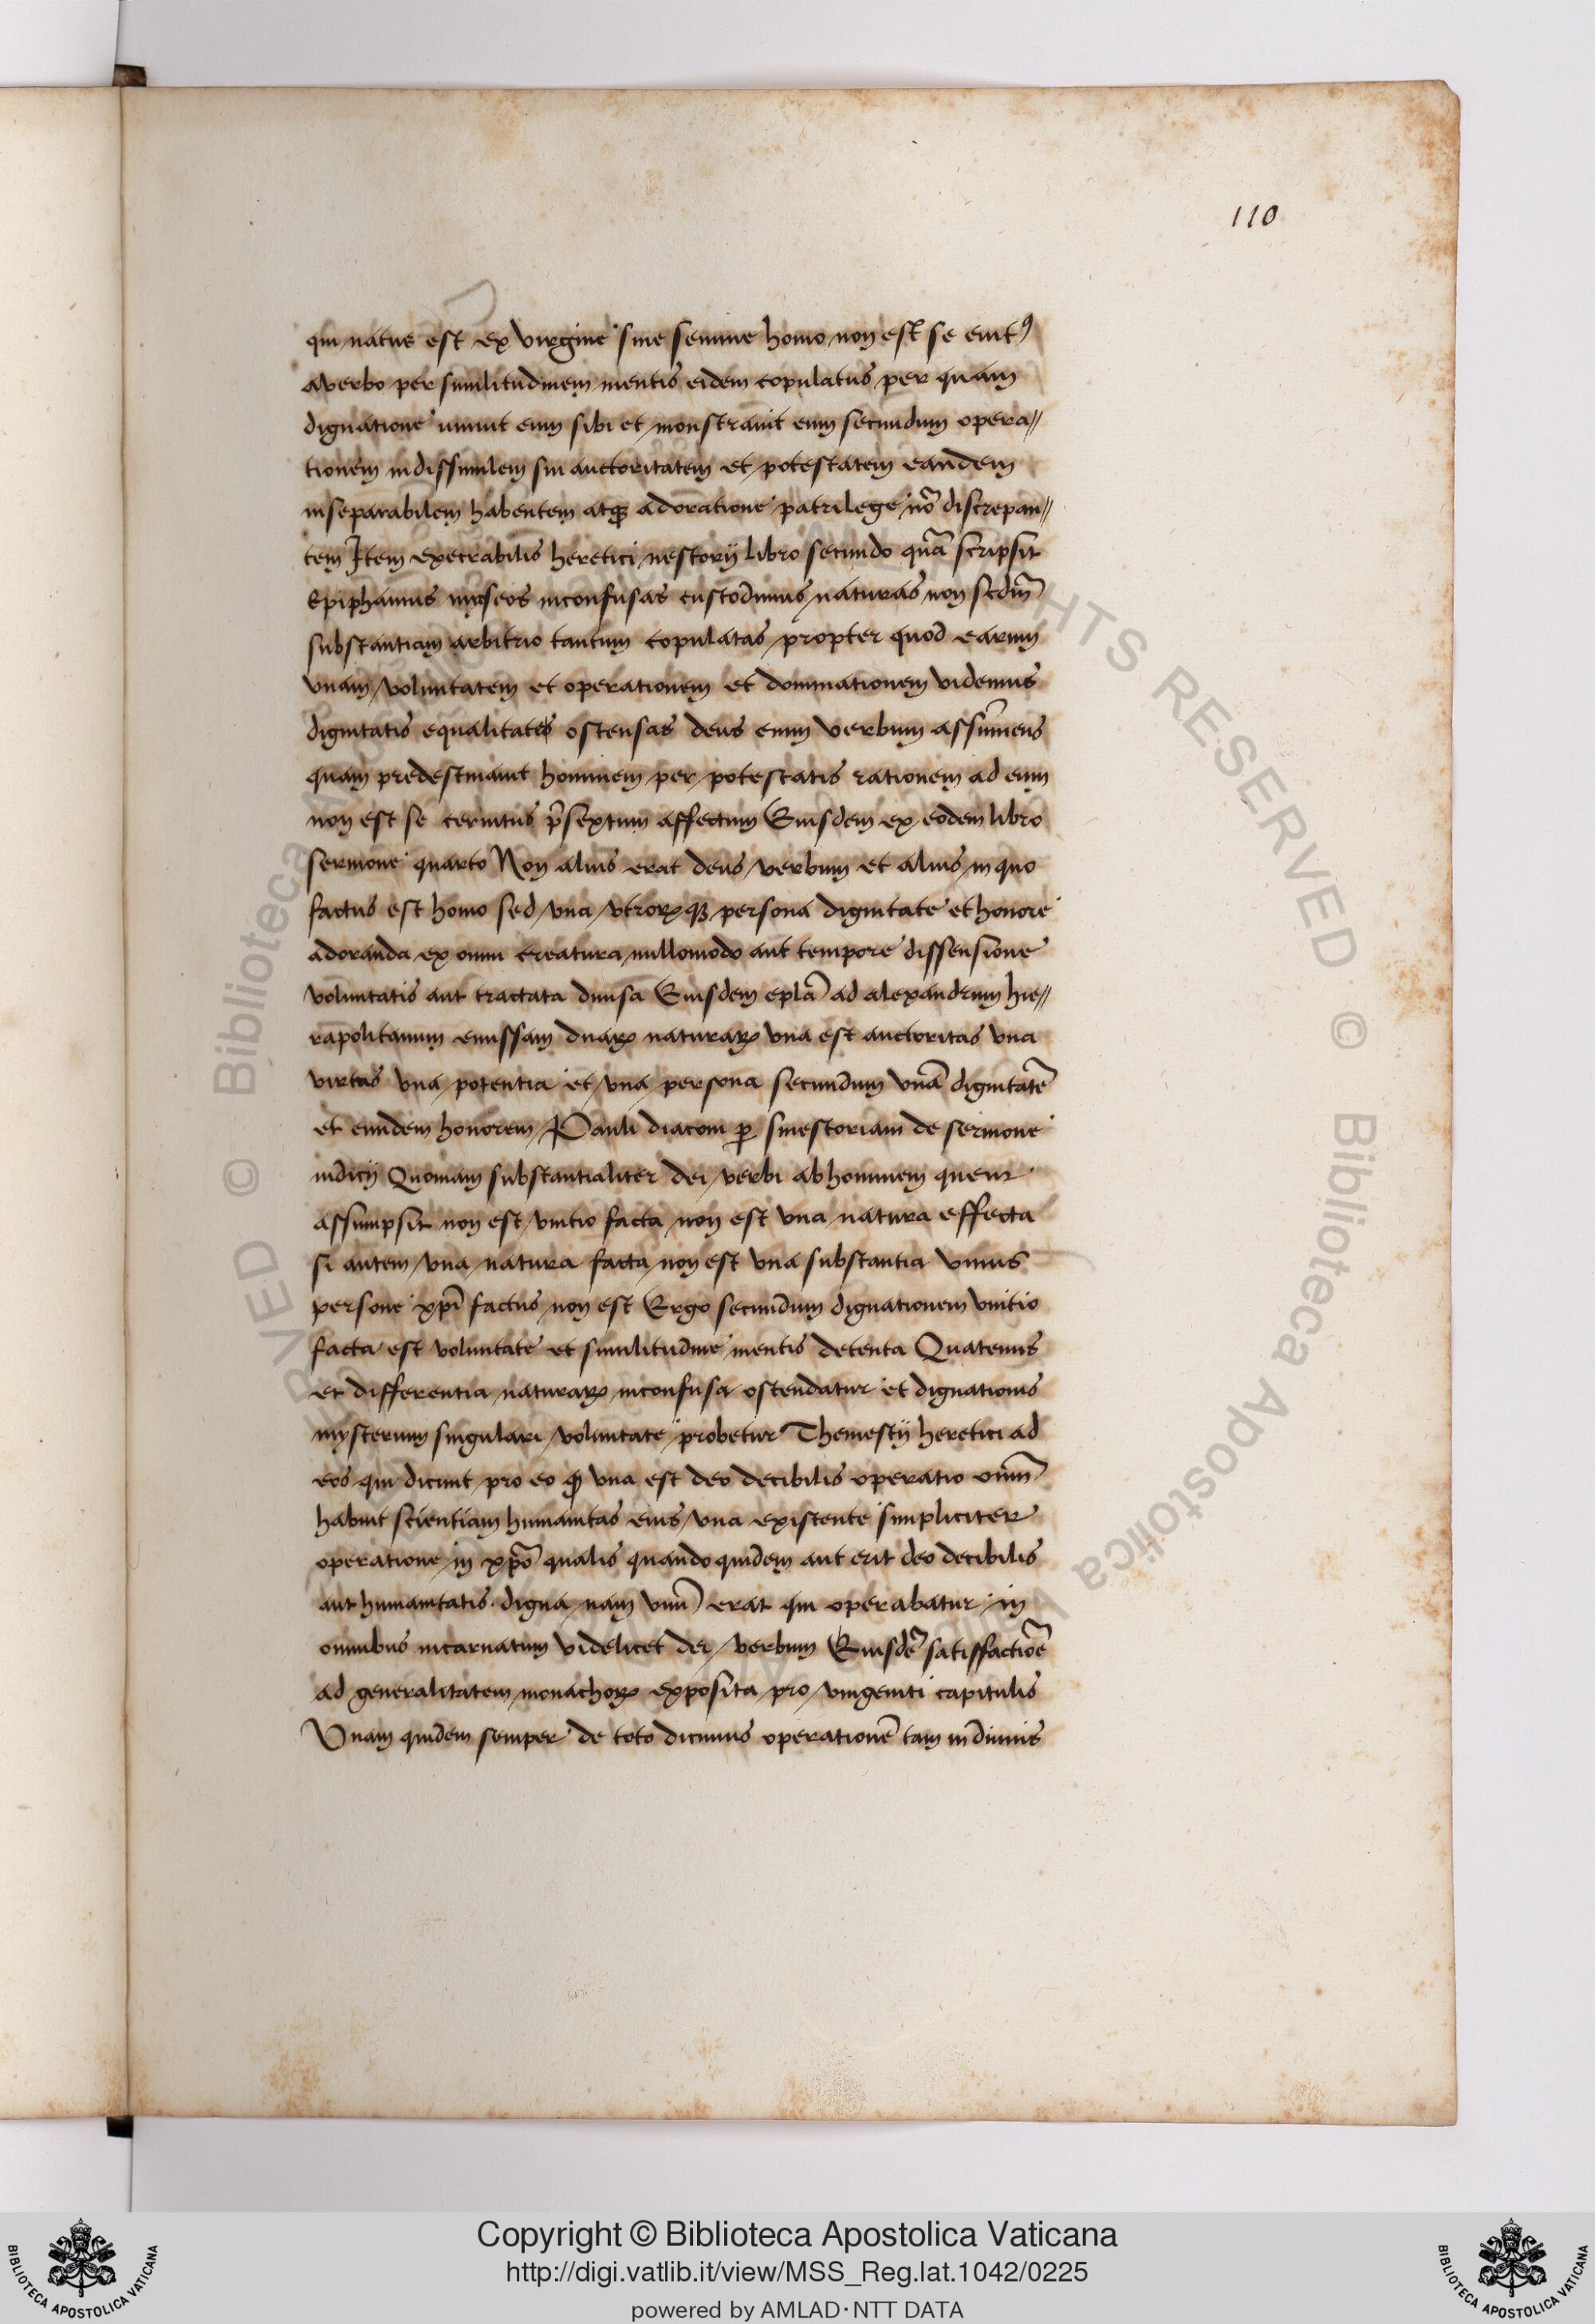 110
qui natus est ex virgine sine semine homo non est se cuit9
a verbo per similitudinem mentis eidem copulatus per quam
dignatione univit eum sibi et monstravit eum secundum opera//
tionem indissimilem sin auctoritatem et potestatem eandem
inseparabilem habentem atq3 adoratione patrilege nō discrepan//
tem Item execrabilis heretici nestorij libro secundo quā scripsit
Epiphanius inconfusas custodimus naturas non scdm̄
substantiam arbitrio tantum copulatas propter quod earum
unam voluntatem et operationem et dominationem videmus
dignitatis equalitates ostensas deus enim verbum assumens
quam predestinavit hominem per potestatis rationem ad eum
non est se cernitus p̄sextum affectum Eiusdem ex eodem libro
sermone quarto Non alius erat deus verbum et alius in quo
factus est homo sed una utrorꝝq3 persona dignitate et honore
adoranda ex omni creatura nullomodo aut tempore dissensione
voluntatis aut tractata divisa Eiusdem eplā ad alexandrum hie//
rapolitanum emissam duaꝝ naturaꝝ una est auctoritas una
virtus una potentia et una persona secundum unā dignitatē
et eundem honorem Pauli diaconi ꝑ sinestoriam de sermone
iudicij Quoniam substantialiter dei verbi ab hominem quem
assumpsit non est unitio facta non est una natura effecta
si autem una natura facta non est una substantia unius
persone xpī factus non est Ergo secundum dignationem unitio
facta est voluntate et similitudine mentis detenta Quatenus
et differentia naturaꝝ inconfusa ostendatur et dignationis
mysterium singulari voluntate probetur Themestij heretici ad
eos qui dicunt pro eo ꝙ una est deo decibilis operatio unam̄
habuit scientiam humanitas eius una existente simpliciter
operatione in xpō qualis quando quidem aut erit deo decibilis
aut humanitatis digna nam unū erat qui operabatur in
omnibus incarnatum videlicet dei verbum Eiusdē satisfactiōe
ad generalitatem monachoꝝ exposita pro unigeniti capitulis
Unam quidem semper de toto dicimus operationē tam in divinis
© Biblioteca Apostolica Vaticana
ALL RIGHTS RESERVED
Copyright © Biblioteca Apostolica Vaticana
http://digi.vatlib.it/view/MSS_Reg.lat.1042/0225
powered by AMLAD·NTT DATA
BIBLIOTECA APOSTOLICA VATICANA
BIBLIOTECA APOSTOLICA VATICANA